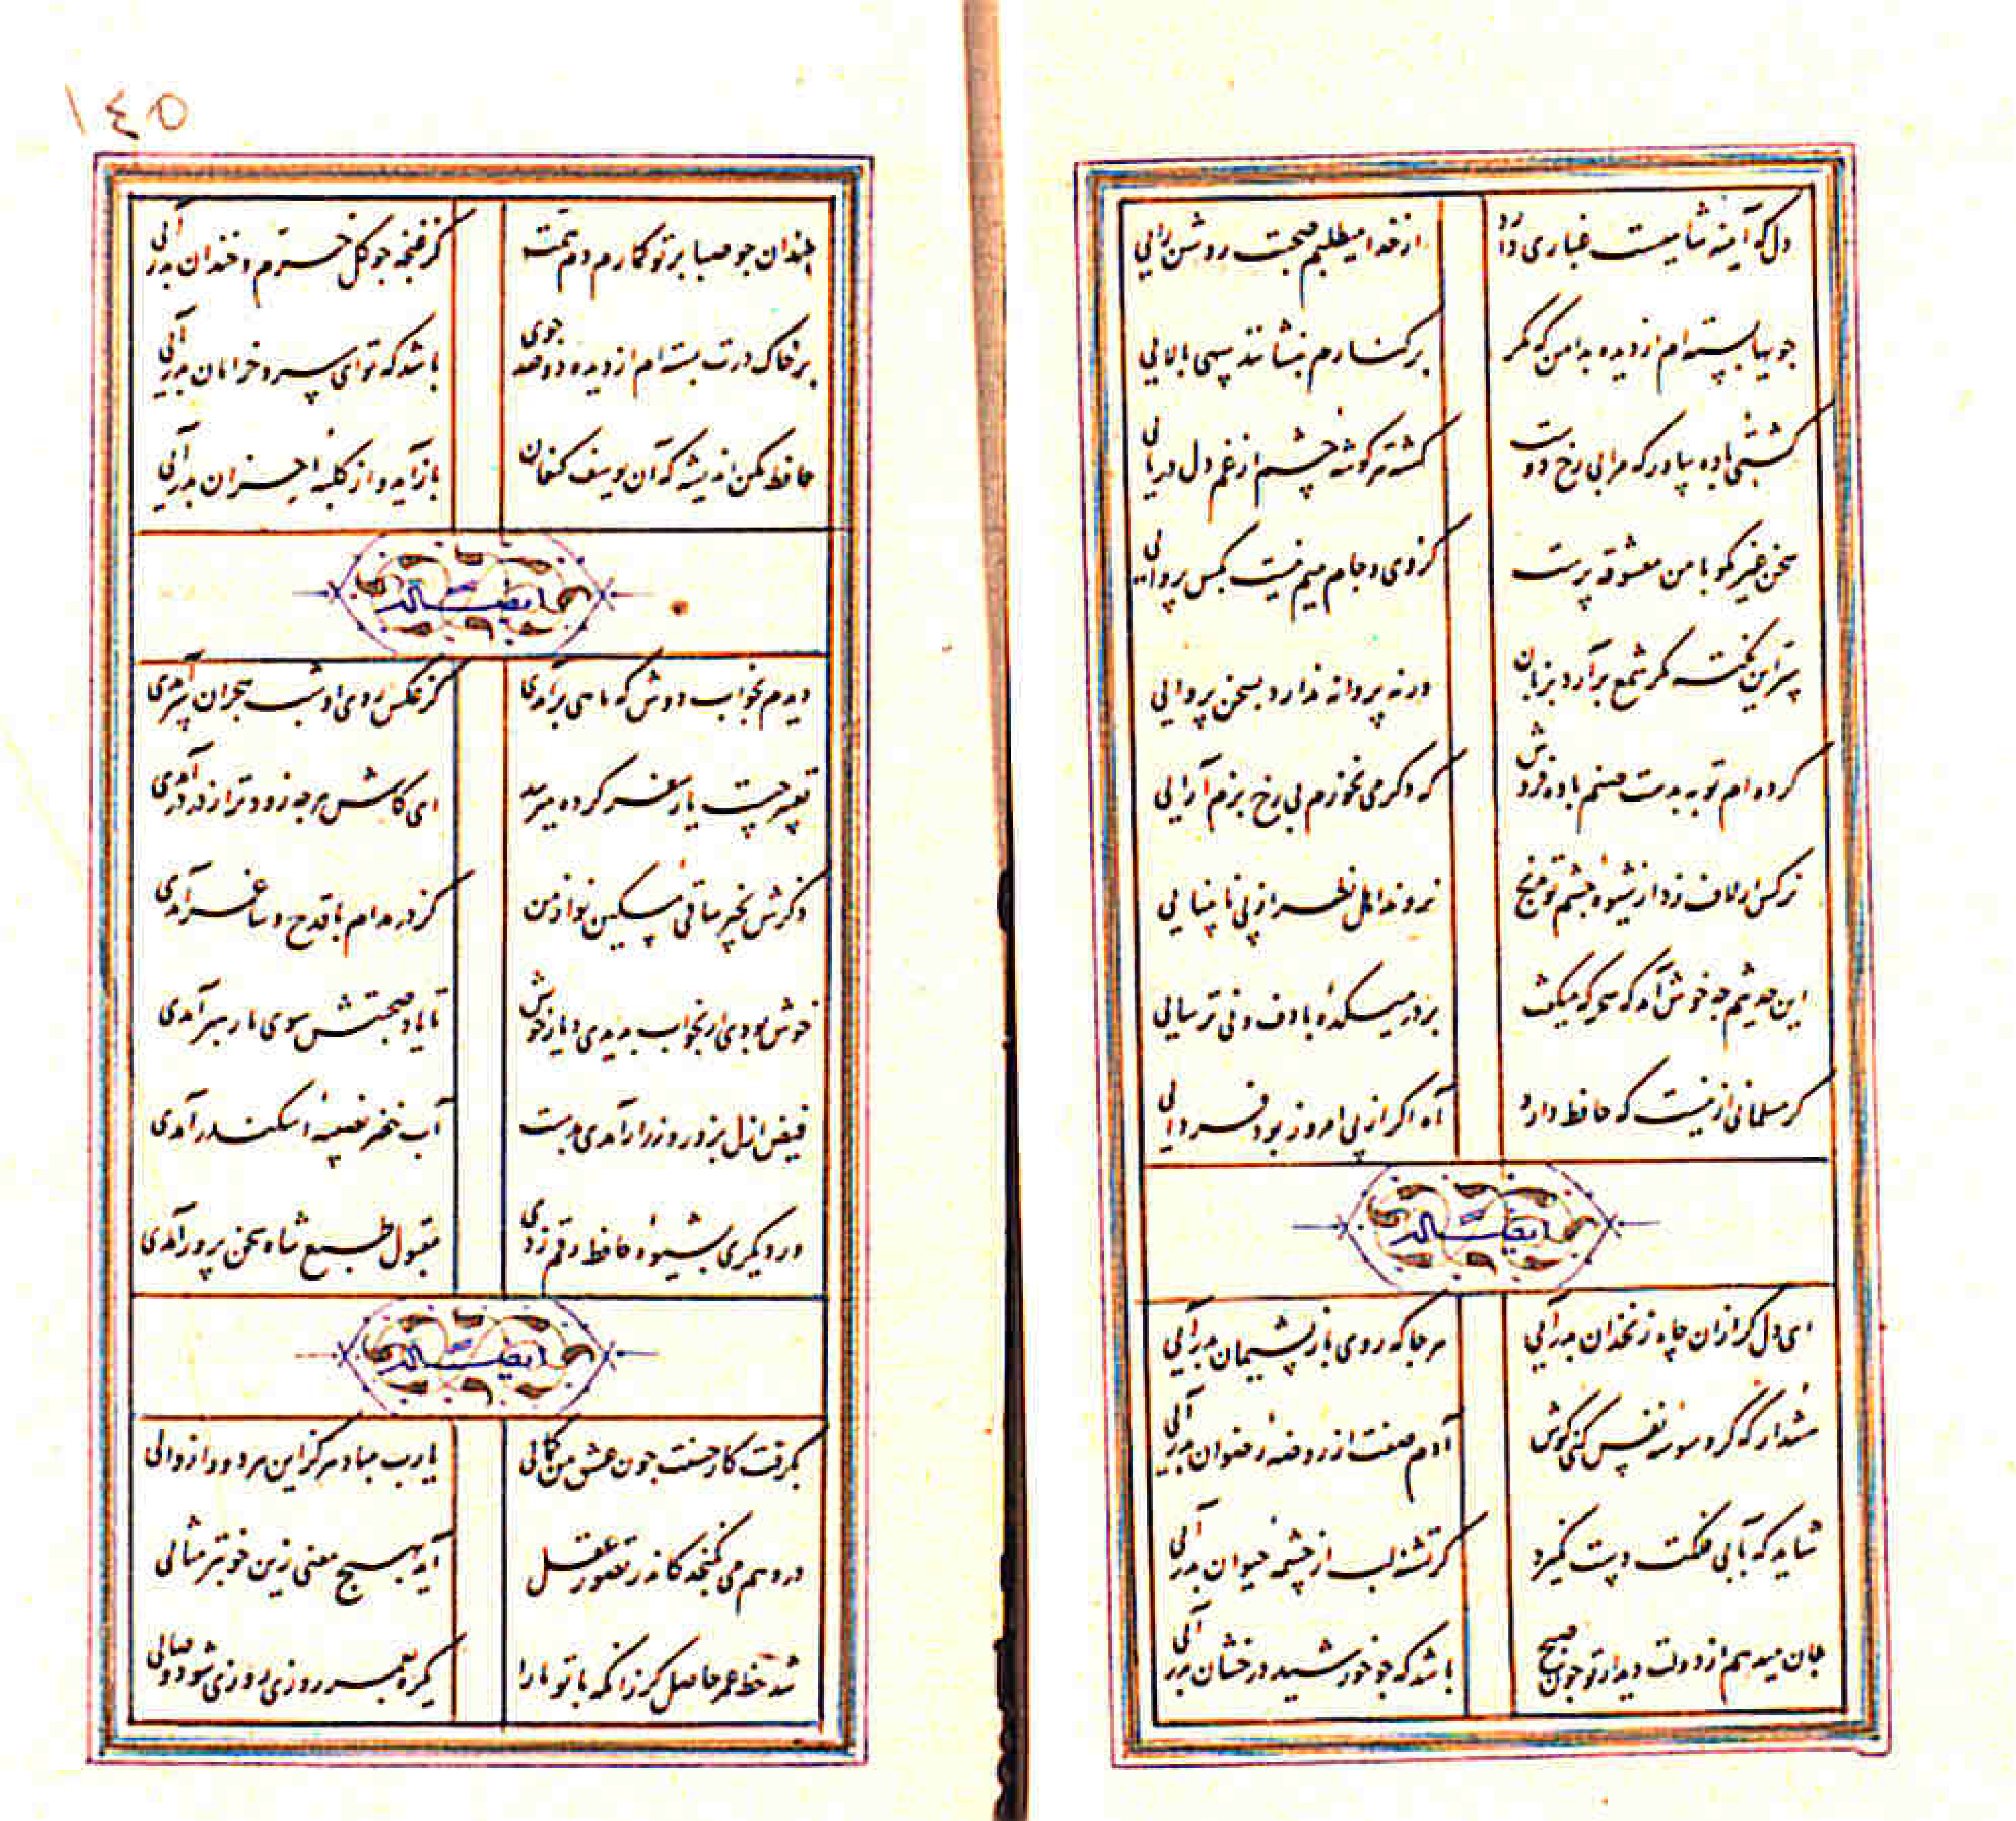 دل که آینه شاهیست غباری دارد
از خدا میطلبم صحبت روشن رایی
جویها بسته‌ام از دیده بدامن که مگر
بر کنارم بنشانند سهی بالایی
کشتی باده بیاور که مرا بی رخ دوست
گشته هر گوشهٔ چشم از غم دل دریایی
سخن غیر مگو با من معشوقه پرست
کز وی و جام میم نیست بکس پروایی
سر این نکته مگر شمع برآرد بزبان
ورنه پروانه ندارد بسخن پروایی
کرده‌ام توبه بدست صنم باده فروش
که دگر می نخورم بی رخ بزم آرایی
نرگس ار لاف زد از شیوهٔ چشم تو مرنج
نروند اهل نظر از پی نابینایی
این حدیثم چه خوش آمد که سحرگه میگفت
بر در میکدهٔ با دف و نی ترسایی
گر مسلمانی ازینست که حافظ دارد
آه اگر از پی امروز بود فردایی
ایضا له
ای دل گر ازان چاه زنخدان بدرآیی
هر جا که روی باز پشیمان بدرآیی
هشدار که گر وسوسه نفس کنی گوش
آدم صفت از روضهٔ رضوان بدرآیی
شاید که بآبی فلکت دست نگیرد
گر تشنه لب از چشمهٔ حیوان بدرآیی
جان میدهم از دولت دیدار تو چون صبح
باشد که چو خورشید درخشان بدرآیی
١٤٥
چندان چو صبا بر تو گمارم دم همت
کز غنچه چو گل خرم و خندان بدرآیی
بر خاک درت بسته‌ام از دیده دو صد جوی
باشد که تو ای سرو خرامان بدرآیی
حافظ مکن اندیشه که آن یوسف کنعان
باز آید و از کلبهٔ احزان بدرآیی
ایضا له
دیدم بخواب دوش که ماهی برآمدی
کز عکس روی او شب هجران سر آمدی
تعبیر چیست یار سفر کرده میرسد
ای کاش هر چه زودتر از در درآمدی
ذکرش بخیر ساقی مسکین نواز من
کز در مدام با قدح و ساغر آمدی
خوش بودی ار بخواب بدیدی دیار خویش
تا یاد صحبتش سوی ما رهبر آمدی
فیض ازل بزور و زر ار آمدی بدست
آب خضر نصیبهٔ اسکندر آمدی
ور دیگری بشیوهٔ حافظ رقم زدی
مقبول طبع شاه سخن پرور آمدی
ایضا له
بگرفت کار حسنت چون عشق من کمالی
یا رب مباد هرگز این هر دو را زوالی
در وهم می نگنجد کاندر تصور عقل
آید بهیچ معنی زین خوبتر مثالی
شد حظ عمر حاصل گر زانکه با تو ما را
یکره بعمر روزی روزی شود وصالی